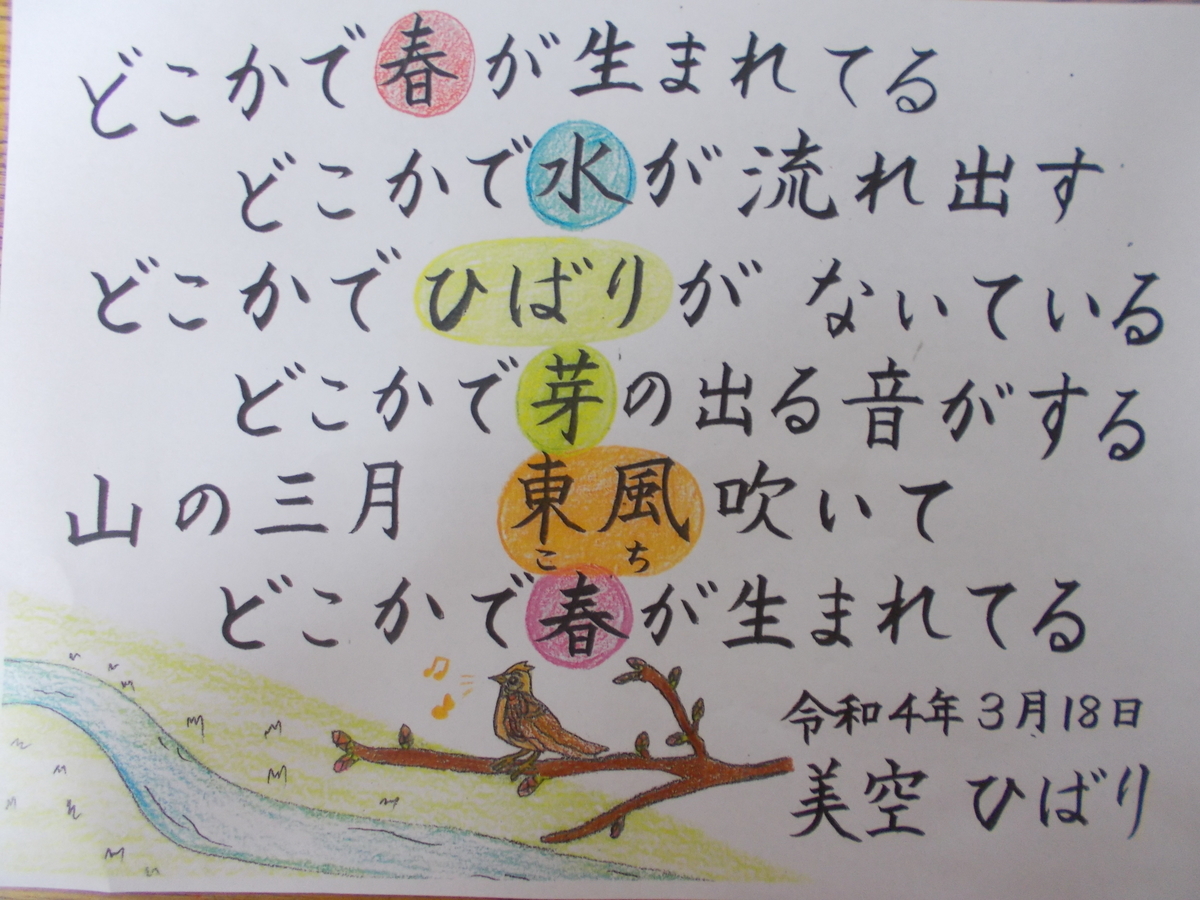 どこかで春が生まれてる
どこかで水が流れ出す
どこかでひばりが ないている
どこかで芽の出る音がする
山の三月 東風吹いて
こち
どこかで春が生まれてる
令和4年3月18日
美空 ひばり